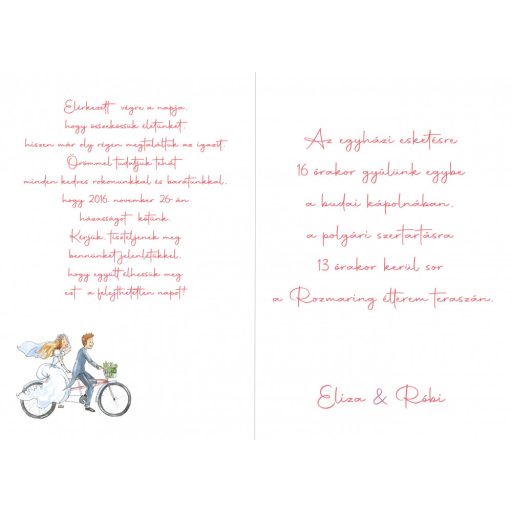 Elérkezett végre a napja,
hogy összekössük életünket,
hiszen már oly régen megtaláltuk az igazit.
Örömmel tudatjuk tehát
minden kedves rokonunkkal és barátunkkal,
hogy 2016. november 26-án
házasságot kötünk.
Kérjük, tiszteljenek meg
bennünket jelenlétükkel,
hogy együtt élhessük meg
ezt a felejthetetlen napot!
Az egyházi esketésre
16 órakor gyűlünk egybe
a budai kápolnában,
a polgári szertartásra
13 órakor kerül sor
a Rozmaring étterem teraszán.
Eliza & Robi